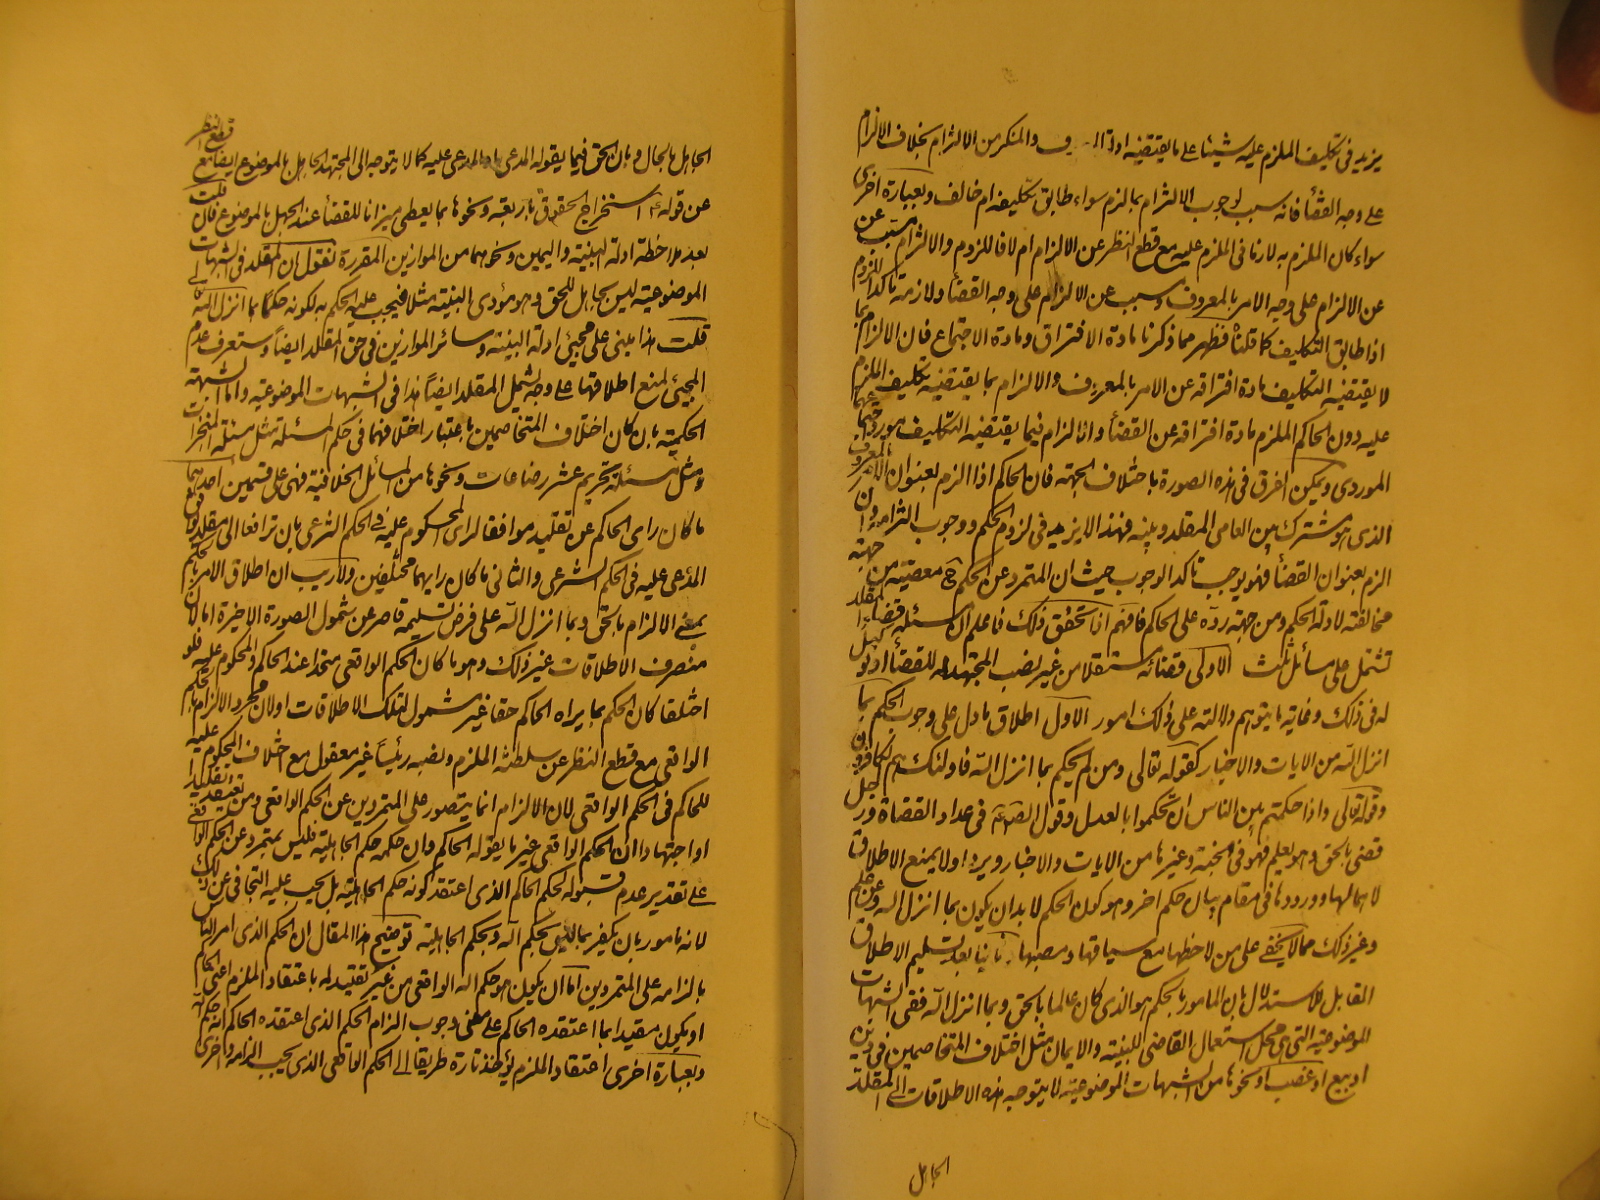 يزيد في تكليف الملزم عليه شيئا على ما يقتضيه ادلة والمنكر من الالتزام بخلاف الالزام
على وجه القضأ فانه سبب لوجوب الالتزام بما الزم سواء طابق تكليفه ام خالف وبعبارة اخرى
سواء كان الملزم به لازما في الملزم عليه مع قطع النظر عن الالزام ام لا فاللزوم والالتزام مسبب عن
عن الالزام على وجه الامر بالمعروف وسبب عن الالزام على وجه القضأ ولازمه تاكد اللزوم
اذا طابق التكليف كما قلنا فظهر مما ذكرنا مادة الافتراق ومادة الاجتماع فان الالزام بما
لا يقتضيه التكليف مادة افتراقه عن الامر بالمعروف والالزام بما يقتضيه تكليف الملزم
عليه دون الحاكم الملزم مادة افتراقه عن القضأ واذا الزام فيما يقتضيه التكليف مورد
الموردى ويمكن الفرق في هذه الصورة باختلاف الجهة فان الحاكم اذا الزم بعنوان الامر بالمعروف
الذي هو مشترك بين العامى المقلد وبينه فهذا لا يزيد في لزوم الحكم ووجوب التزامه وان
الزم بعنوان القضأ فهو يوجب تاكد الوجوب حيث ان المتمرد عن الحكم ح معصيته من جهة
مخالفته لادلة الحكم ومن جهة رده على الحاكم فافهم اذا تحقق ذلك فاعلم ان مسئلة قضأ المقلد
تشتمل على مسائل ثلث الاولى قضائه مستقلا من غير نصب المجتهد له للقضأ او توكيل
له في ذلك وغاية ما يتوهم دلالته على ذلك امور الاول اطلاق ما دل على وجوب الحكم بما
انزل الله من الايات والاخبار كقوله تعالى ومن لم يحكم بما انزل الله فاولئك هم الكافرون
وقوله تعالى واذا حكمتم بين الناس ان تحكموا بالعدل وقول الصادق في عداد القضاة ورجل
قضى بالحق وهو يعلم فهو في الجنة وغيرها من الايات والاخبار ويرد اولا بمنع الاطلاق
لاهمالها وورودها في مقام بيان حكم اخر وهو كون الحكم لا بد ان يكون بما انزل الله وعن علم
وغير ذلك مما لا يخفى على من لاحظها مع سياقها ومصبها وثانيا بعد تسليم الاطلاق
القابل للاستدلال بان المامور بالحكم هو الذي كان عالما بالحق وبما انزل الله ففى الشبهات
الموضوعية التي هى محل استعمال القاضي للبينة والايمان مثل اختلاف المتخاصمين في دين
او بيع او غصب او نحوها من الشبهات الموضوعية لا يتوجه هذه الاطلاقات الى المقلد
الجاهل
الجاهل بالحال وبان الحق فيما يقوله المدعى او المدعى عليه كما لا يتوجه الى المجتهد الجاهل بالموضوع ايضا مع قطع النظر
عن قوله ع استخراج الحقوق باربعة ونحوها بما يعطى ميزانا للقضأ عند الجهل بالموضوع فان قلت
بعد ملاحظة ادلة البينة واليمين ونحوهما من الموازين المقررة نقول ان المقلد في الشبهات
الموضوعية ليس بجاهل للحق وهو مؤدى البينة مثلا فيجب عليه الحكم به لكونه حكما بما انزل الله
قلت هذا يبنى على مجيئ ادلة البينة وسائر الموازين في حق المقلد ايضا وستعرف عدم
المجيئ لمنع اطلاقها على وجه يشمل المقلد ايضا هذا في الشبهات الموضوعية واما الشبهة
الحكمية بان كان اختلاف المتخاصمين باعتبار اختلافهما في حكم المسئلة مثل مسئلة المنجزات
ومثل مسئلة تحريم عشر رضاعات ونحوها من المسائل الخلافية فهى على قسمين احدهما
ما كان راى الحاكم عن تقليد موافقا لراى المحكوم عليه في الحكم الشرعى بان ترافعا الى مقلد
المدعى عليه في الحكم الشرعى والثانى ما كان رايهما مختلفين ولا ريب ان اطلاق الامر بالحكم
بمعنى الالزام بالحق وبما انزل الله على فرض تسليمه قاصر عن شمول الصورة الاخيرة اما لان
منصرف الاطلاقات غير ذلك وهو ما كان الحكم الواقعى متحدا عند الحاكم والمحكوم عليه فلو
اختلفا كان الحكم بما يراه الحاكم حقا غير مشمول لتلك الاطلاقات او لان مجرد الالزام بالحكم
الواقعى مع قطع النظر عن سلطنة الملزم ونصبه رئيسا غير معقول مع اختلاف المحكوم عليه
للحاكم في الحكم الواقعى لان الالزام انما يتصور على المتمردين عن الحكم الواقعى ومن يعتقد تقليدا
او اجتهادا ان الحكم الواقعى غير ما يقوله الحاكم وان حكمه حكم الجاهلية فليس بمتمرد عن الحكم الواقعى
على تقدير عدم قبوله لحكم الحاكم الذي اعتقد كونه حكم الجاهلية بل يجب عليه التجافى عن ذلك
لانه مامور بان يكفر بما ليس بحكم الله وبحكم الجاهلية توضيح هذا المقال ان الحكم الذي امر الناس
بالزامه على المتمردين اما ان يكون هو حكم الله الواقعى من غير تقييد له باعتقاد الملزم اعنى الحاكم
او يكون مقيدا بما اعتقده الحاكم على معنى وجوب الزام الحكم الذي اعتقده الحاكم انه حكم الله
وبعبارة اخرى اعتقاد الملزم يؤخذ تارة طريقا الى الحكم الواقعى الذي يجب الزامه واخرى